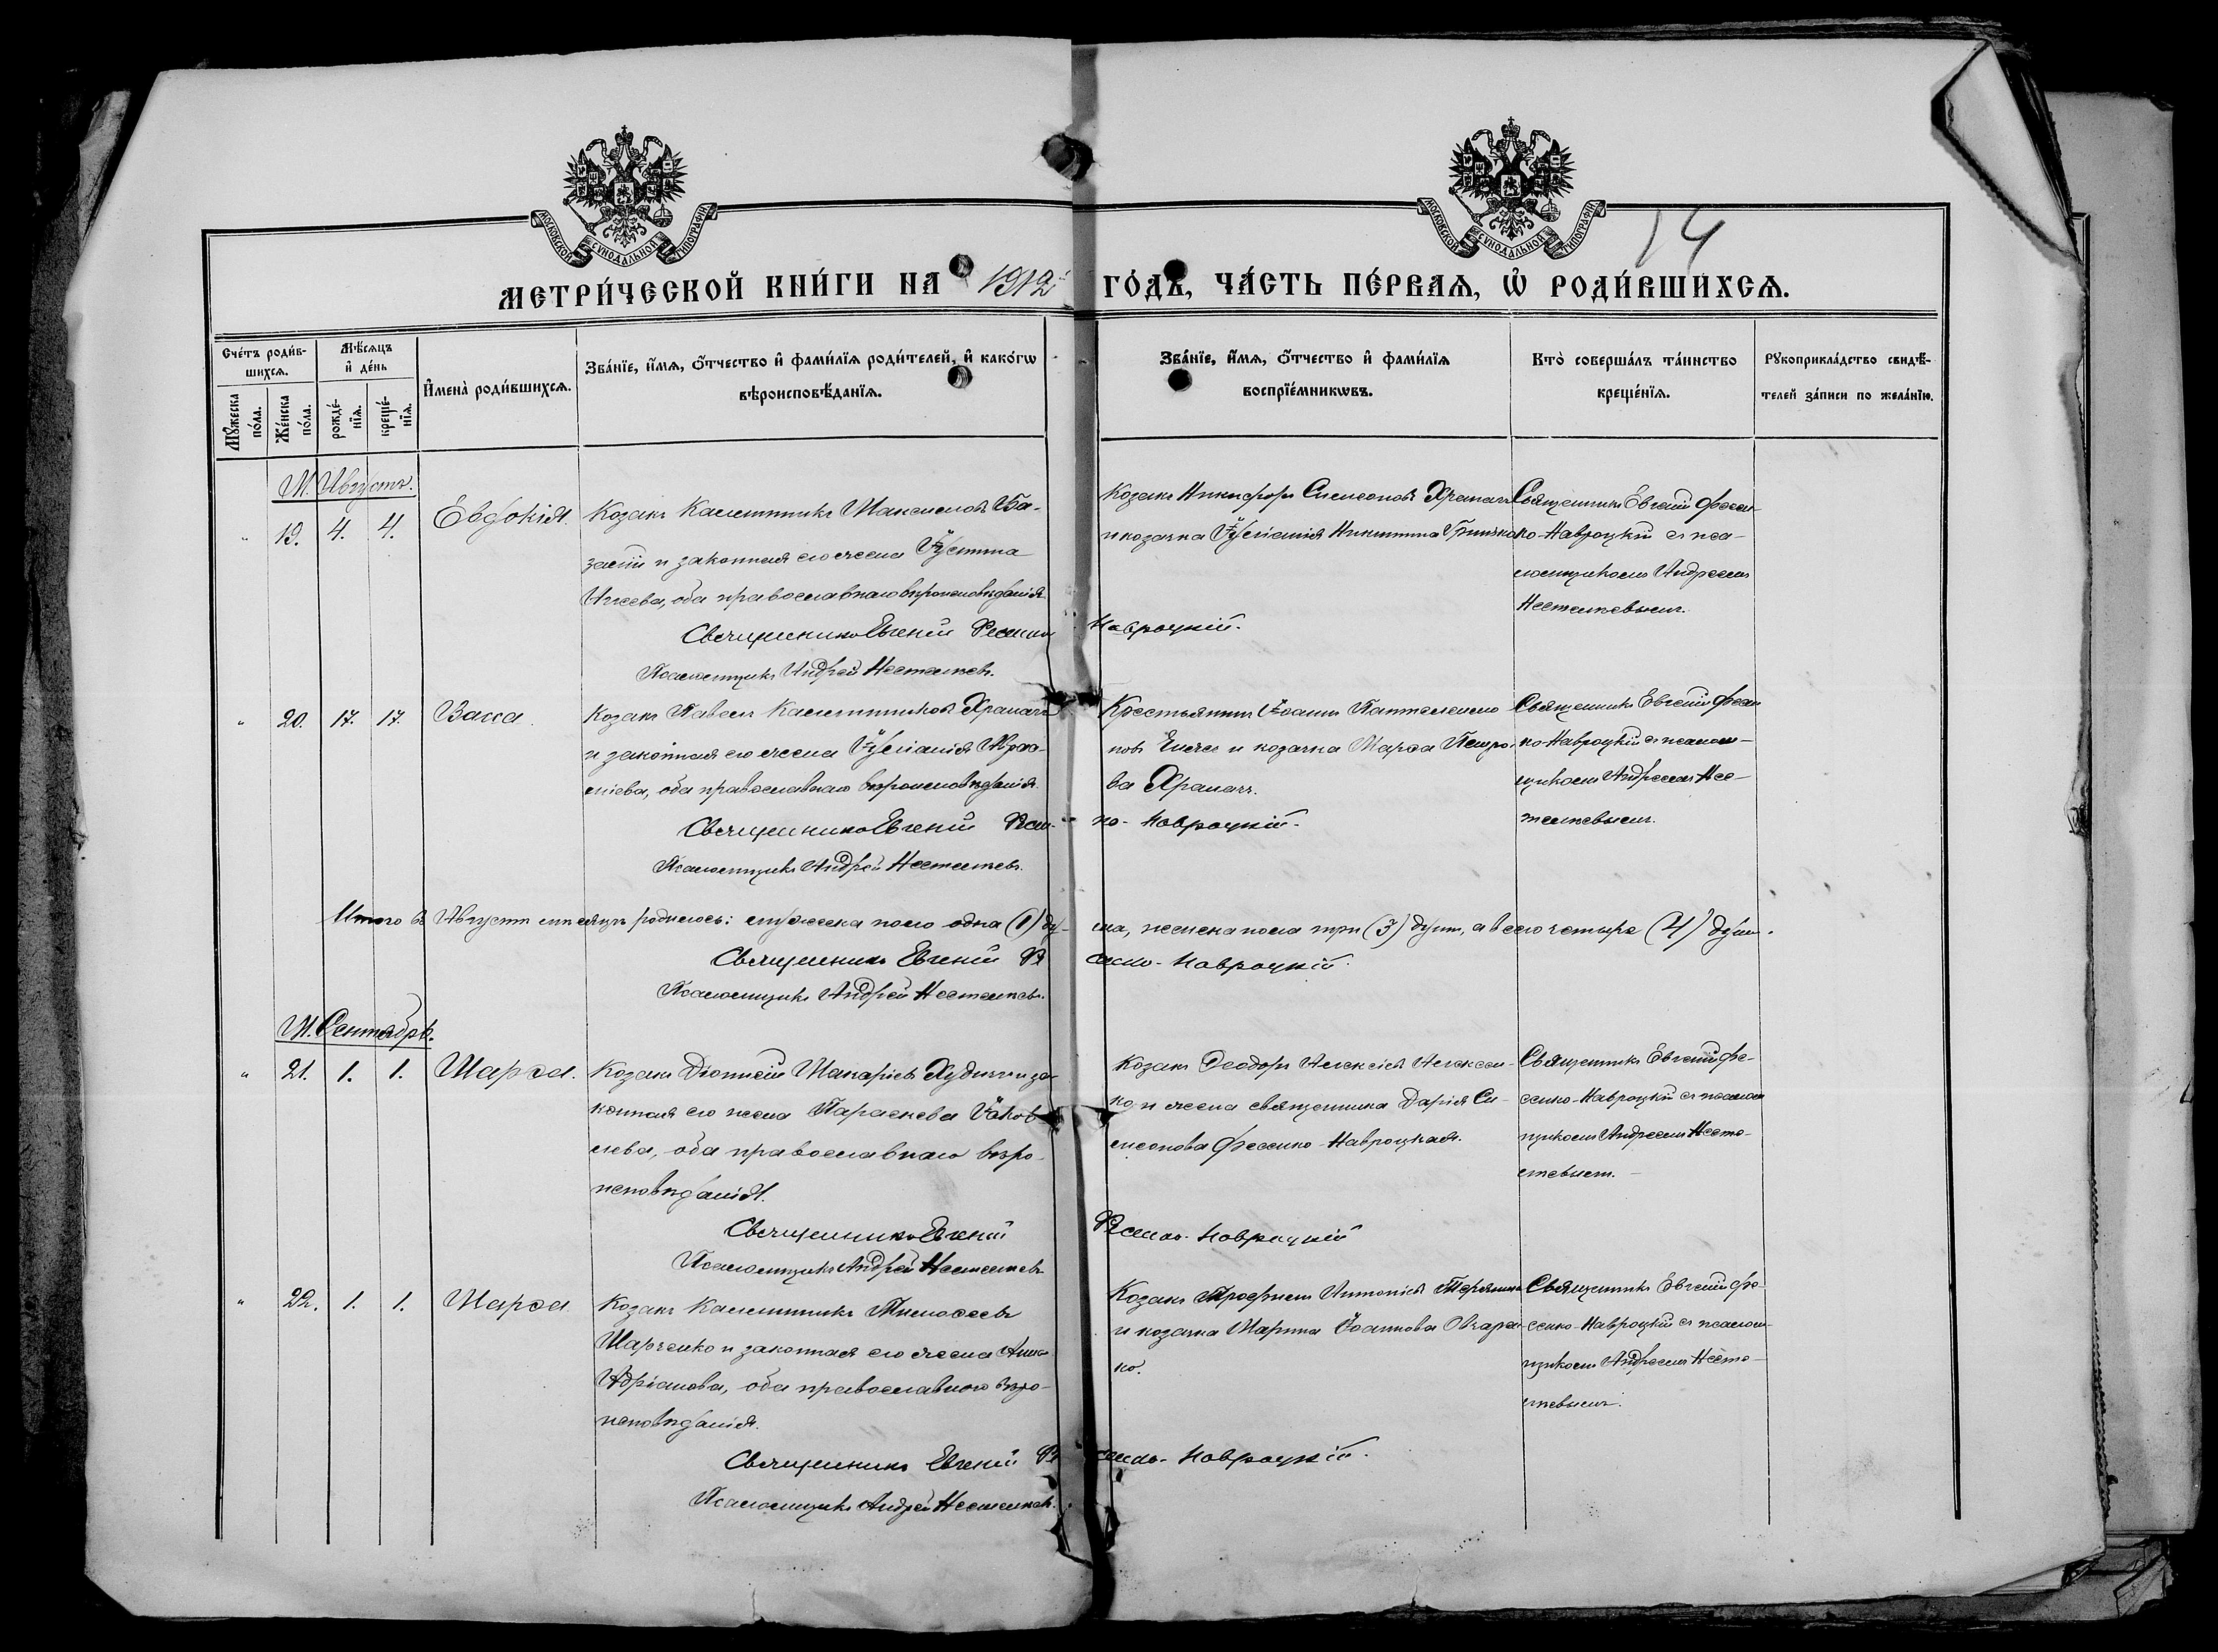 МОСКОВСКОЙ СѴНОДАЛЬНОЙ ТИПОГРАФІИ
МОСКОВСКОЙ СѴНОДАЛЬНОЙ ТИПОГРАФІИ
14
МЕТРИ́ЧЕСКОЙ КНИ́ГИ НА 1912й ГО́ДЪ, ЧА́СТЬ ПЕ́РВАЯ, Ѡ҆ РОДИ́ВШИХСЯ.
Сче́тъ роди́в-
шихся.
Мѣ́сяцъ
и҆ де́нь
Мꙋ́жеска по́ла.
Же́нска по́ла.
рожде́-
нїя.
креще́-
нїя.
И҆мена̀ роди́вшихся.
Зва́нїе, и҆́мя, ѻ҆́тчество и҆ фами́лїя роди́телей, и҆ како́гѡ
вѣроисповѣ́данїя.
Зва́нїе, и҆́мя, ѻ҆́тчество и҆ фами́лїя
воспрїе́мникѡвъ.
Кто̀ соверша́лъ та́инство
креще́нїя.
Рꙋкоприкла́дство свидѣ́-
телей за́писи по жела́нїю.
М. Августъ.
" 19. 4. 4. Евдокія.
Козакъ Каллиникъ Максимовъ Ба-
зилій и законная его жена Іустина
, оба православнаго вѣроисповѣданія.
Козакъ Никифоръ Симеоновъ Храпачъ
и козачка Іуліанія Никитина Гринько
Священникъ Евгеній Фесен-
ко-Навроцкій съ пса-
ломщикомъ Андреемъ
Нестелѣевымъ.
Священникъ Евгеній Фесенко Навроцкій.
Псаломщикъ Андрей Нестелѣевъ.
" 20. 17. 17. Васса.
Козакъ Павелъ Каллиниковъ Храпачъ
и законная его жена Іуліанія
, оба православнаго вѣроисповѣданія.
Крестьянинъ Іоаннъ Пантелеимо-
новъ и козачка Марѳа Петро-
ва Храпачъ.
Священникъ Евгеній Фесен-
ко-Навроцкій съ псалом-
щикомъ Андреемъ Нес-
телѣевымъ.
Священникъ Евгеній Фесен- ко-Навроцкій.
Псаломщикъ Андрей Нестелѣевъ.
Итого въ Августѣ мѣсяцѣ родилось: мужеска пола одна (1) ду- ша, женска пола три (3) души, а всего четыре (4) души.
Священникъ Евгеній Фесенко-Навроцкій.
Псаломщикъ Андрей Нестелѣевъ.
М. Сентябрь.
" 21. 1. 1. Марѳа.
Козакъ Діонисій Макаріевъ Худичъ и за-
конная его жена Параскева Іаков-
лева, оба православнаго вѣро-
исповѣданія.
Козакъ Ѳеодоръ Алексіевъ Алексѣен-
ко и жена священника Дарія Си-
меонова Фесенко-Навроцкая.
Священникъ Евгеній Фе-
сенко-Навроцкій съ псалом-
щикомъ Андреемъ Несте-
лѣевымъ.
Священникъ Евгеній Фесенко-Навроцкій
Псаломщикъ Андрей Нестелѣевъ
" 22. 1. 1. Марѳа
Козакъ Каллиникъ Тимоѳеевъ
Марченко и законная его жена Анна
Адріанова, оба православнаго вѣро-
исповѣданія.
Козакъ Трофимъ Антоніевъ
и козачка Марина Іоаннова Овчарен-
ко.
Священникъ Евгеній Фе-
сенко-Навроцкій съ псалом-
щикомъ Андреемъ Несте-
лѣевымъ.
Священникъ Евгеній Фесенко-Навроцкій.
Псаломщикъ Андрей Нестелѣевъ.